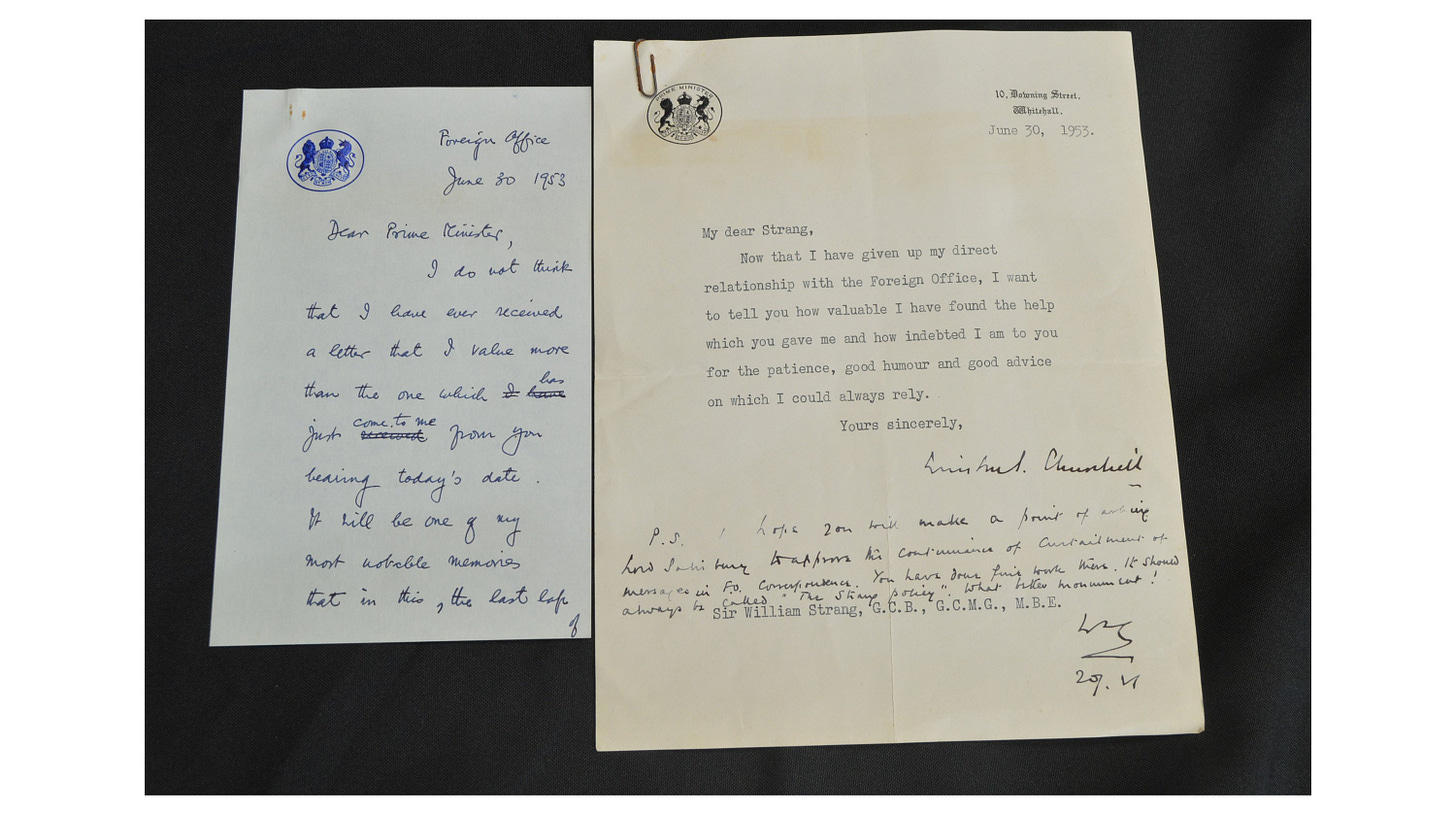 Foreign Office
June 30 1953
Dear Prime Minister,
I do not think
that I have ever received
a letter that I value more
has
than the one which I have
come to me
just received from you
bearing today's date.
It will be one of my
most notable memories
that in this, the last lap
of
PRIME MINISTER
10, Downing Street,
Whitehall.
June 30, 1953.
My dear Strang,
Now that I have given up my direct
relationship with the Foreign Office, I want
to tell you how valuable I have found the help
which you gave me and how indebted I am to you
for the patience, good humour and good advice
on which I could always rely.
Yours sincerely,
Winston S. Churchill
P.S. I hope you will make a point of asking
Lord Salisbury to approve the continuance of Curtailment of
messages in F.O. Correspondence. You have done fine work there. It should
always be called "The Strang policy". What better monument!
Sir William Strang, G.C.B., G.C.M.G., M.B.E.
WSC